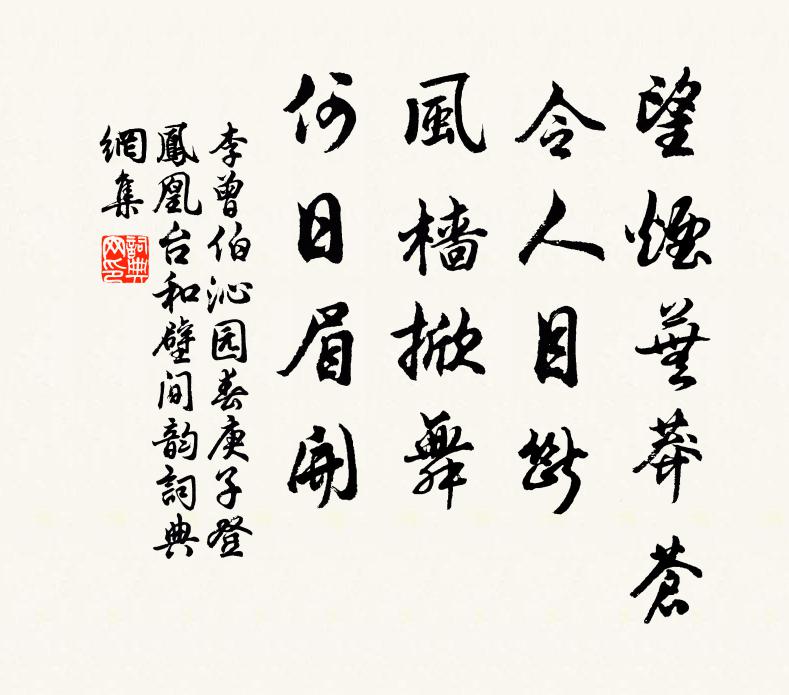 望煙蕪莽蒼
令人目斷
風檣掀舞
何日眉開
李曾伯沁园春庚子登
鳳凰台和壁间韵詞典
網集
詞典
网印